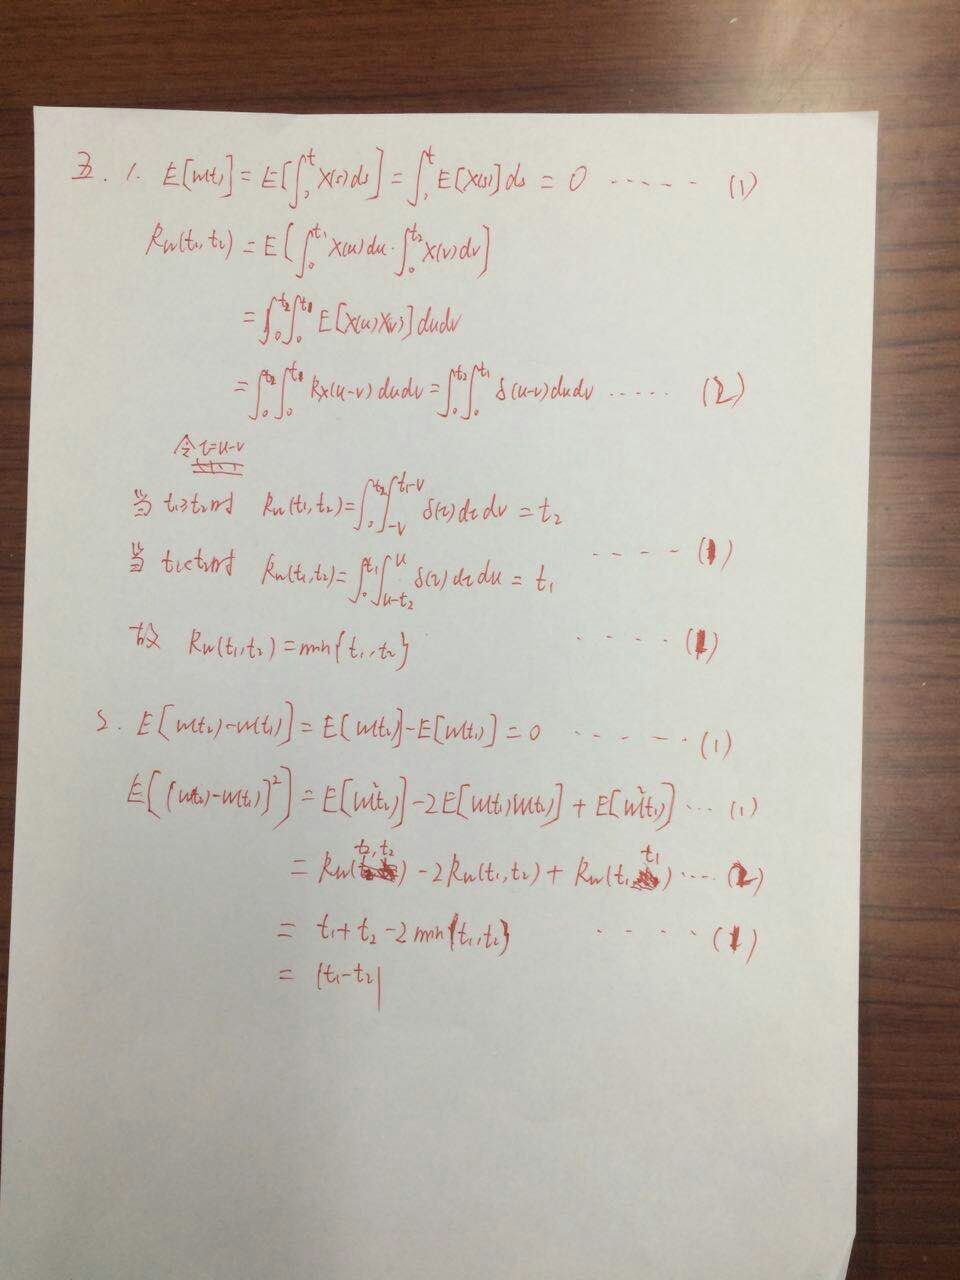 五. 1. E[W(t)] = E[∫₀ᵗ X(s)ds] = ∫₀ᵗ E[X(s)]ds = 0 ······ (1)
R_W(t₁,t₂) = E[∫₀^{t₁} X(u)du · ∫₀^{t₂} X(v)dv]
= ∫₀^{t₂}∫₀^{t₁} E[X(u)X(v)]dudv
= ∫₀^{t₂}∫₀^{t₁} R_X(u-v)dudv = ∫₀^{t₂}∫₀^{t₁} δ(u-v)dudv ····· (2)
令τ=u-v
当 t₁≥t₂时 R_W(t₁,t₂) = ∫₀^{t₂}∫_{-v}^{t₁-v} δ(τ)dτdv = t₂
当 t₁<t₂时 R_W(t₁,t₂) = ∫₀^{t₁}∫_{u-t₂}^{u} δ(τ)dτdu = t₁ ···· (1)
故 R_W(t₁,t₂) = min{t₁,t₂} ···· (1)
2. E[W(t₂)-W(t₁)] = E[W(t₂)]-E[W(t₁)] = 0 ····· (1)
E[(W(t₂)-W(t₁))²] = E[W²(t₂)]-2E[W(t₁)W(t₂)]+E[W²(t₁)] ··· (1)
= R_W(t₂,t₂) - 2R_W(t₁,t₂) + R_W(t₁,t₁) ··· (2)
= t₁+t₂-2min{t₁,t₂} ····· (1)
= |t₁-t₂|